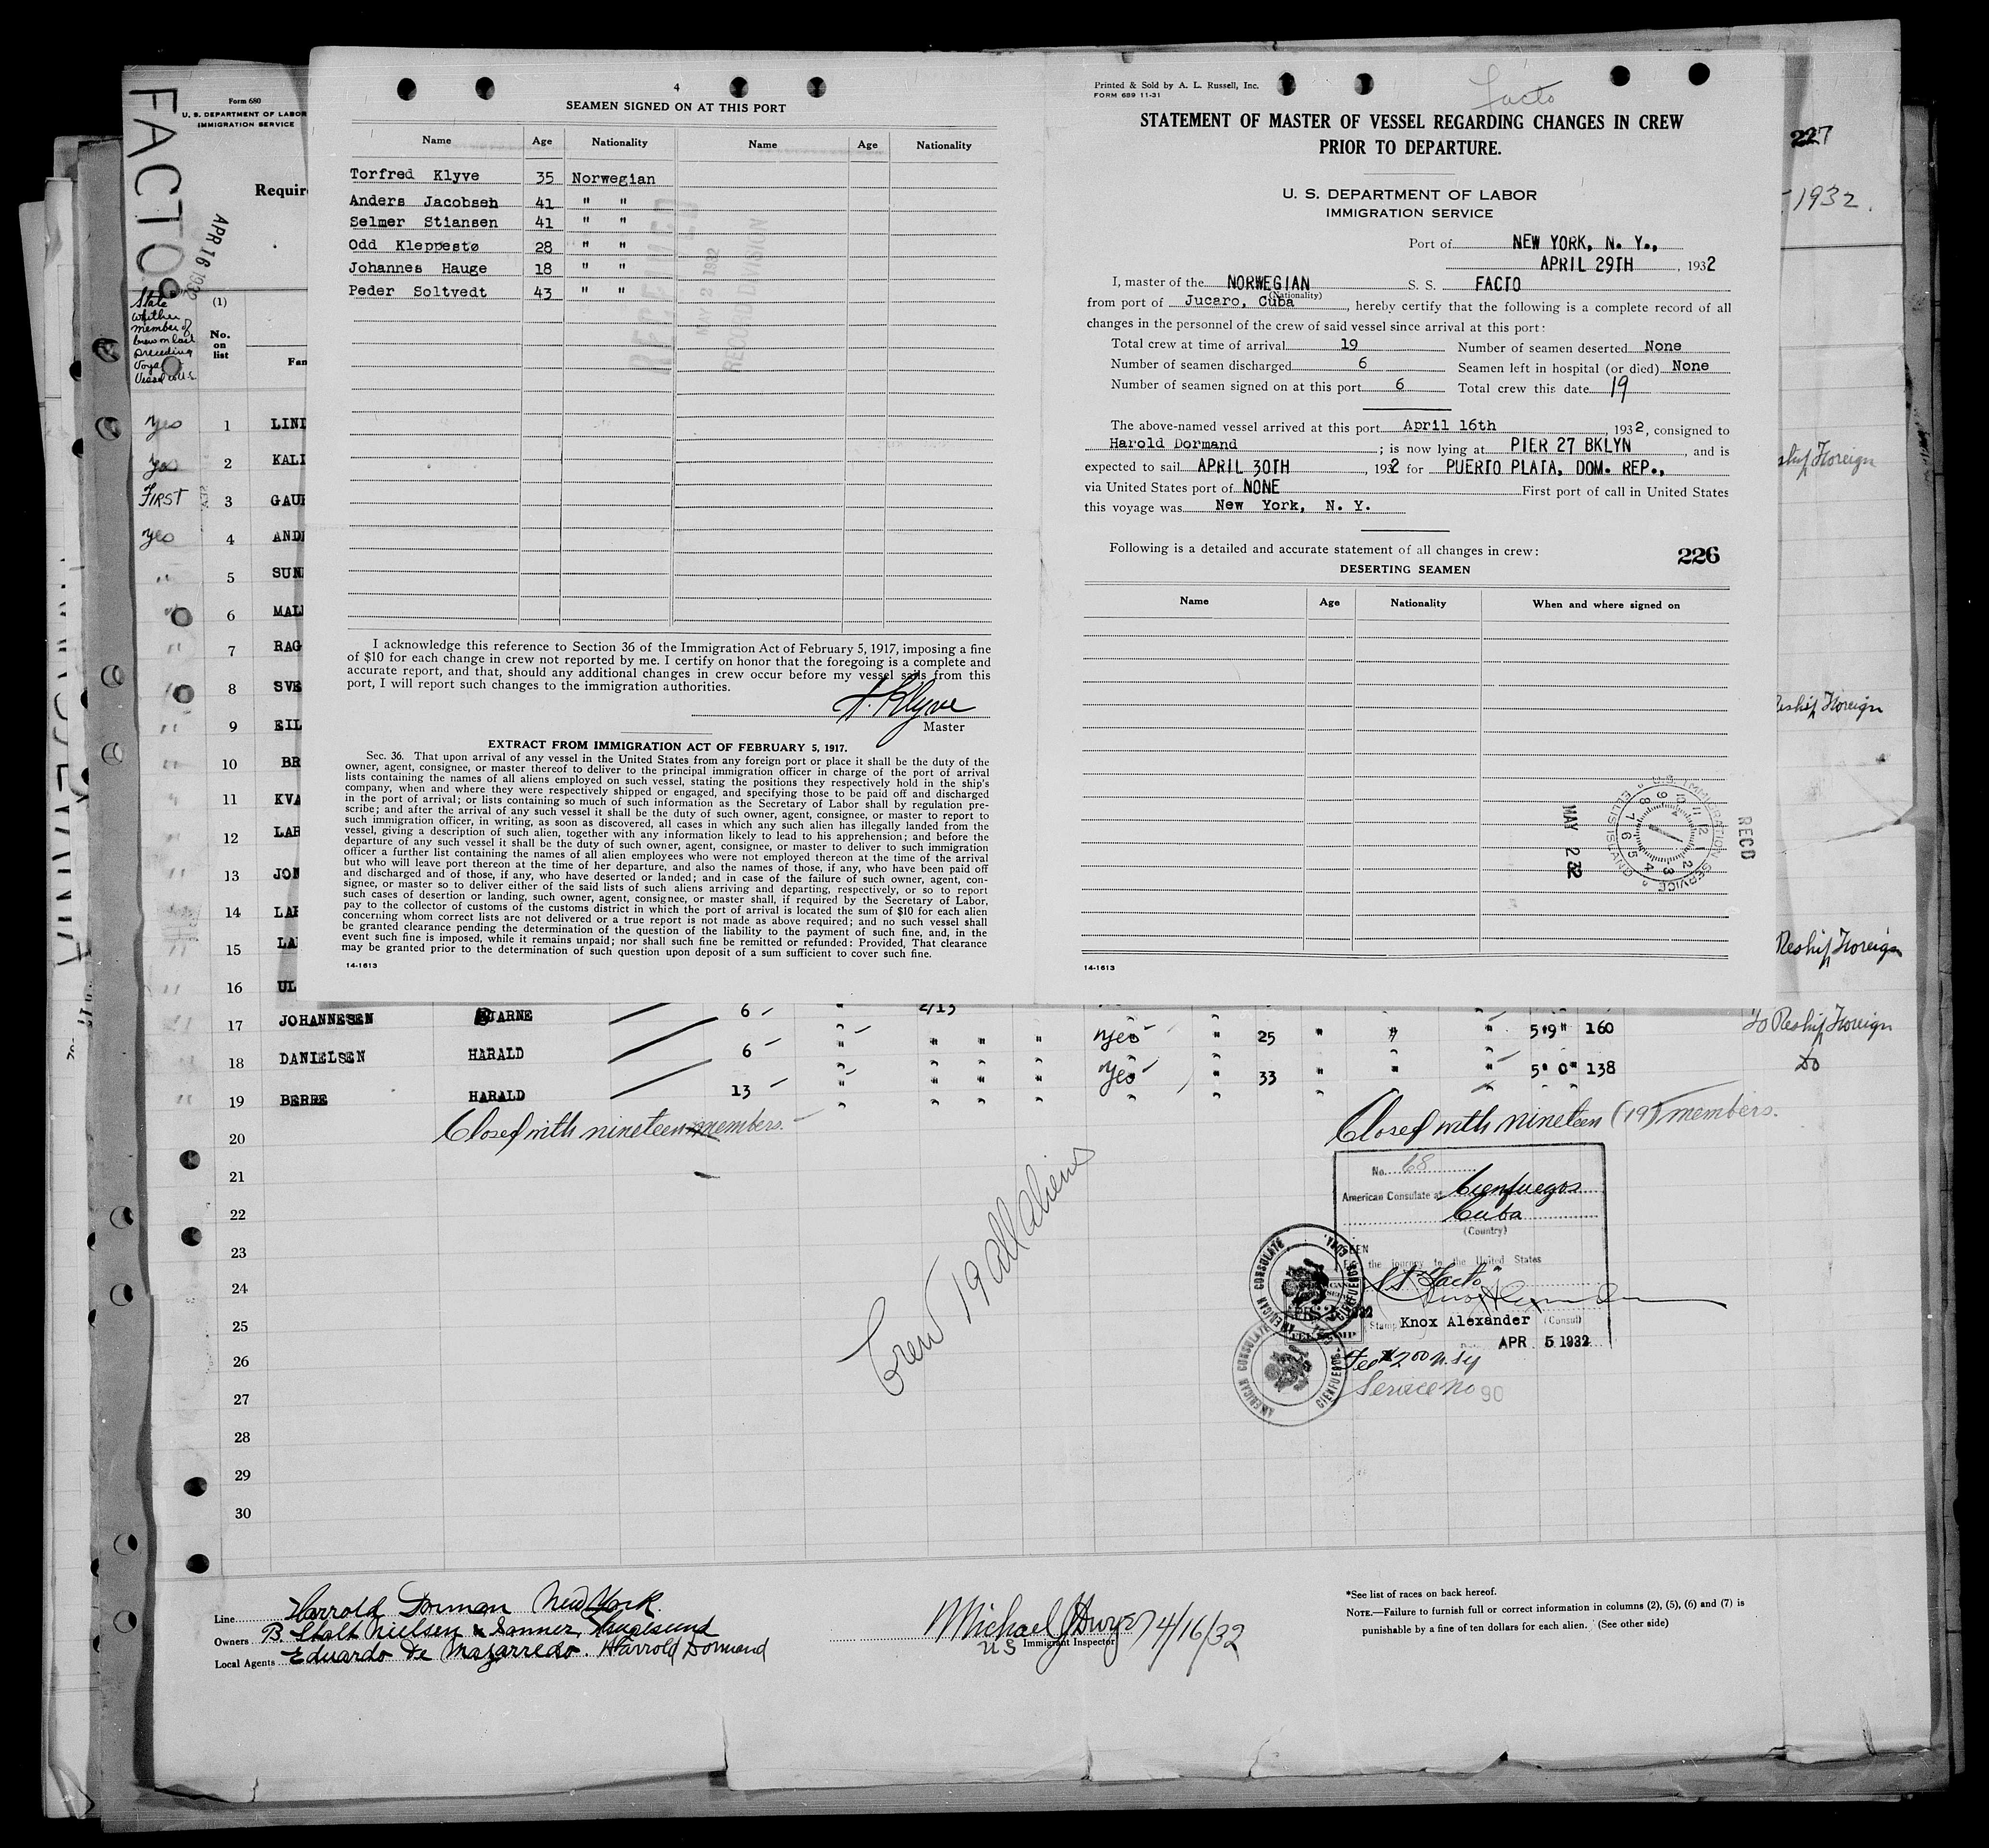 4
SEAMEN SIGNED ON AT THIS PORT
Name Age Nationality Name Age Nationality
Torfred Klyve 35 Norwegian
Anders Jacobsen 41 " "
Selmer Stiansen 41 " "
Odd Kleppestø 28 " "
Johannes Hauge 18 " "
Peder Soltvedt 43 " "
RECEIVED
MAY 2 1932
RECORD DIVISION
I acknowledge this reference to Section 36 of the Immigration Act of February 5, 1917, imposing a fine
of $10 for each change in crew not reported by me. I certify on honor that the foregoing is a complete and
accurate report, and that, should any additional changes in crew occur before my vessel sails from this
port, I will report such changes to the immigration authorities.
T. Klyve
Master
EXTRACT FROM IMMIGRATION ACT OF FEBRUARY 5, 1917.
Sec. 36. That upon arrival of any vessel in the United States from any foreign port or place it shall be the duty of the
owner, agent, consignee, or master thereof to deliver to the principal immigration officer in charge of the port of arrival
lists containing the names of all aliens employed on such vessel, stating the positions they respectively hold in the ship's
company, when and where they were respectively shipped or engaged, and specifying those to be paid off and discharged
in the port of arrival; or lists containing so much of such information as the Secretary of Labor shall by regulation pre-
scribe; and after the arrival of any such vessel it shall be the duty of such owner, agent, consignee, or master to report to
such immigration officer, in writing, as soon as discovered, all cases in which any such alien has illegally landed from the
vessel, giving a description of such alien, together with any information likely to lead to his apprehension; and before the
departure of any such vessel it shall be the duty of such owner, agent, consignee, or master to deliver to such immigration
officer a further list containing the names of all alien employees who were not employed thereon at the time of the arrival
but who will leave port thereon at the time of her departure, and also the names of those, if any, who have been paid off
and discharged and of those, if any, who have deserted or landed; and in case of the failure of such owner, agent, con-
signee, or master so to deliver either of the said lists of such aliens arriving and departing, respectively, or so to report
such cases of desertion or landing, such owner, agent, consignee, or master shall, if required by the Secretary of Labor,
pay to the collector of customs of the customs district in which the port of arrival is located the sum of $10 for each alien
concerning whom correct lists are not delivered or a true report is not made as above required; and no such vessel shall
be granted clearance pending the determination of the question of the liability to the payment of such fine, and, in the
event such fine is imposed, while it remains unpaid; nor shall such fine be remitted or refunded: Provided, That clearance
may be granted prior to the determination of such question upon deposit of a sum sufficient to cover such fine.
14-1613
Printed & Sold by A. L. Russell, Inc.
FORM 689 11-31
Facto
STATEMENT OF MASTER OF VESSEL REGARDING CHANGES IN CREW
PRIOR TO DEPARTURE.
U. S. DEPARTMENT OF LABOR
IMMIGRATION SERVICE
Port of NEW YORK, N. Y.,
APRIL 29TH , 1932
I, master of the NORWEGIAN S. S. FACTO
(Nationality)
from port of Jucaro, Cuba , hereby certify that the following is a complete record of all
changes in the personnel of the crew of said vessel since arrival at this port:
Total crew at time of arrival 19 Number of seamen deserted None
Number of seamen discharged 6 Seamen left in hospital (or died) None
Number of seamen signed on at this port 6 Total crew this date 19
The above-named vessel arrived at this port April 16th , 1932, consigned to
Harold Dormand ; is now lying at PIER 27 BKLYN , and is
expected to sail APRIL 30TH , 1932 for PUERTO PLATA, DOM. REP.,
via United States port of NONE First port of call in United States
this voyage was New York, N. Y.
Following is a detailed and accurate statement of all changes in crew: 226
DESERTING SEAMEN
Name Age Nationality When and where signed on
MAY 2 32
U.S. IMMIGRATION SERVICE ELLIS ISLAND
RECD
14-1613
FACTO
Form 680
U. S. DEPARTMENT OF LABOR
IMMIGRATION SERVICE
Requir
APR 16 1932
227
1932.
State
whether
member of
crew on last
preceding
(1)
No.
on
list
Fam
Yes 1 LIND
Yes 2 KALI
FIRST 3 GAU
Yes 4 AND
" 5 SUN
" 6 MAL
" 7 RAG
" 8 SVE
" 9 EIL
" 10 BR
" 11 KVA
" 12 LAR
" 13 JON
" 14 LAR
" 15 LA
" 16 UL
Reship Foreign
Reship Foreign
Reship Foreign
" 17 JOHANNESEN BJARNE 6 " 2/15 Yes " 25 " " " 5'9" 160 To Reship Foreign
" 18 DANIELSEN HARALD 6 " " " " Yes " 33 " " " 5'0" 138 Do
" 19 BERRE HARALD 13 " " " "
20 Closed with nineteen members. Closed with nineteen (19) members.
21
22
23
24
25
26
27
28
29
30
Crew 19 all aliens
No. 68
American Consulate at Cienfuegos
Cuba
(Country)
SEEN
the journey to the United States
SS Facto
Knox Alexander (Consul)
Stamp
APR 5 1932
AMERICAN CONSULATE CIENFUEGOS, CUBA.
AMERICAN CONSULATE CIENFUEGOS
Fee $2.00
Service No 90
Line Harrold Dorman New York.
Owners B. Stolt Nielsen & Sonner, Haugesund
Local Agents Eduardo De Mazarredo. Harrold Dormand
Michael J Dwyer 4/16/32
US Immigrant Inspector
*See list of races on back hereof.
NOTE.—Failure to furnish full or correct information in columns (2), (5), (6) and (7) is
punishable by a fine of ten dollars for each alien. (See other side)